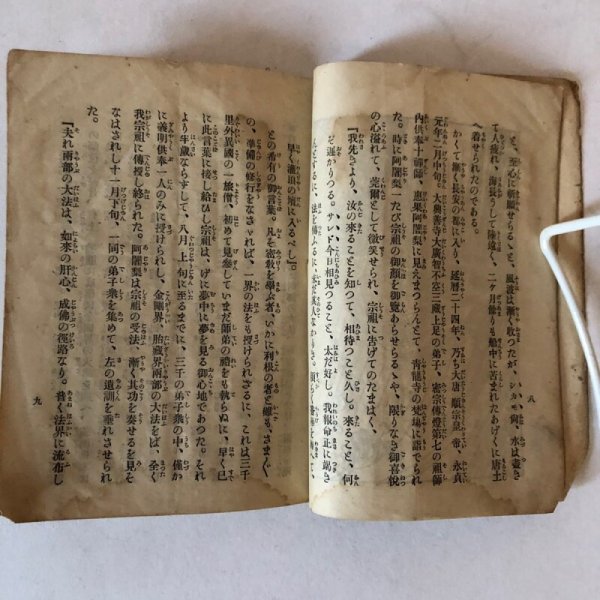 と、至心に祈願せらるゝと、風波は漸く収つたが、シカモ尚、水は盡き
て人疲れ、海路うして陸遠く、二ケ月餘りも船中に苦まれたあげくに唐土
へ着せられたのである。
かくて漸く長安の都に入り、延曆二十四年、乃ち大唐　順宗皇帝、永貞
元年二月中旬、西善寺大廣智不空三藏上足の弟子、密宗傳燈第七の祖師
內供奉十禪師　惠果阿闍梨に見えまつらんとて、靑龍寺の梵場に詣でられ
た。時に阿闍梨一たび宗祖の御顏を御覽あらせらるゝや、限りなき御喜悅
の心溢れて、莞爾として微笑せられ、宗祖に吿げてのたまはく、
『我先きより、汝の來ることを知つて、相待つこと久し。來ること、何
ぞ遲かりつる。サレド今日相見つること、太だ好し。我報命正に竭き
んとするに、法を傳ふるに、
早く灌頂の壇に入るべし』。
との希有の御言葉。凡そ密敎を學ぶ者、いかに利根の者と雖も、さまざま
の、準備の修行をなさゞれば、一界の法をも授けられざるに、これは三千
里外異國の一旅僧、初めて見參していまだ師弟の禮をも執らぬに、早く已
に此言葉に接し給ひし宗祖は、げに夢中に夢を見る御心地であつた。それ
より半歲ならずして、八月上旬に至るまでに、三千の弟子衆の中、僅か
に義明供奉一人のみに授けられし、金剛界、胎藏界兩部の大法をば、全く
我宗祖に傳授し終られた。阿闍梨は宗祖の受法、漸く其功を奏せるを見そ
なはされし十一月下旬、一同の弟子衆を集めて、左の遺訓を垂れさせられ
た。
『夫れ兩部の大法は、如來の肝心、成佛の徑路なり。普く法界に流布し
八
九